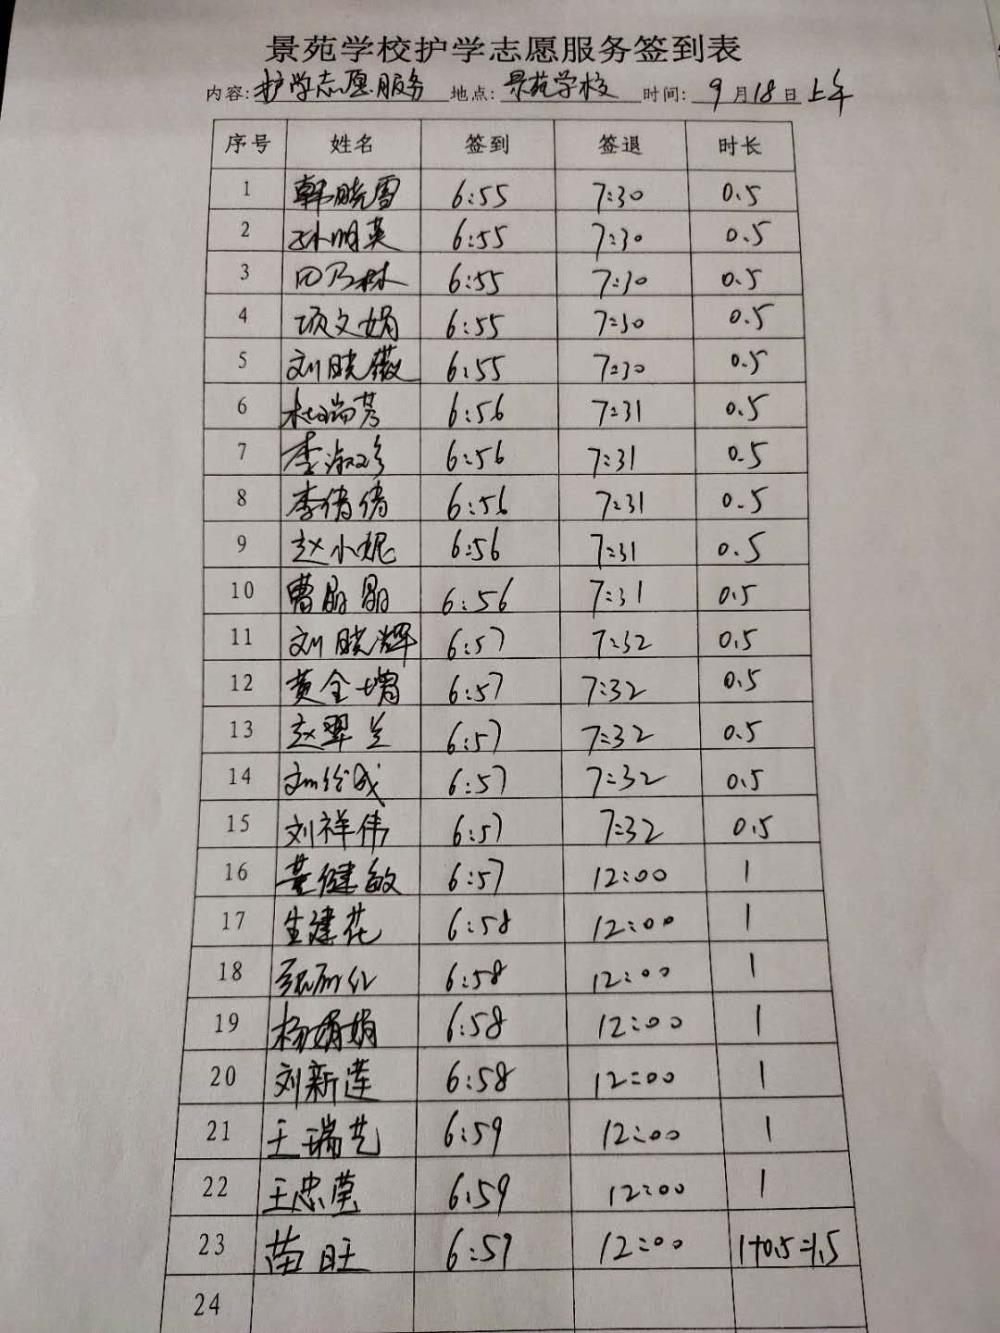 景苑学校护学志愿服务签到表
内容:护学志愿服务 地点:景苑学校 时间:9月18日上午
序号 姓名 签到 签退 时长
1 韩晓雪 6:55 7:30 0.5
2 孙明英 6:55 7:30 0.5
3 田乃林 6:55 7:30 0.5
4 项文娟 6:55 7:30 0.5
5 刘晓薇 6:55 7:30 0.5
6 杜瑞芳 6:56 7:31 0.5
7 李淑珍 6:56 7:31 0.5
8 李倩倩 6:56 7:31 0.5
9 赵小妮 6:56 7:31 0.5
10 曹晶晶 6:56 7:31 0.5
11 刘晓辉 6:57 7:32 0.5
12 黄金增 6:57 7:32 0.5
13 赵翠兰 6:57 7:32 0.5
14 6:57 7:32 0.5
15 刘祥伟 6:57 7:32 0.5
16 董健敏 6:57 12:00 1
17 生建花 6:58 12:00 1
18 6:58 12:00 1
19 杨娟娟 6:58 12:00 1
20 刘新莲 6:58 12:00 1
21 王瑞芝 6:59 12:00 1
22 王忠莹 6:59 12:00 1
23 苗旺 6:59 12:00 1+0.5=1.5
24